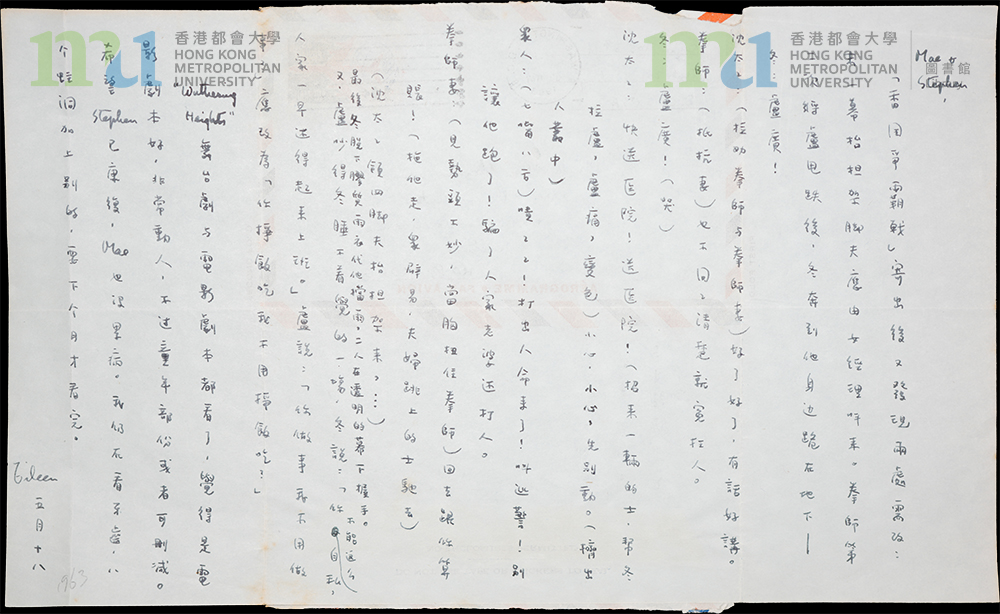 Mae &
Stephen,
「南北爭霸戰」寄出後又發現兩處需改：
第一幕抬担架脚夫應由女經理叫來。拳師第
二次將盧甩跌後，冬奔到他身边跪在地下——
冬：盧廣！
沈太太：（拉勸拳師与拳師妻）好了好了，有話好講。
拳師：（抵抗妻）也不问问清楚就寃枉人。
冬：盧廣！（哭）
沈太：快送医院！送医院！（招來一輛的士，幫冬
拉盧，盧痛，變色）小心，小心，先別動。（擠出
人叢中）
眾人：（七嘴八舌）嘖嘖！打出人命來了！叫巡警！別
讓他跑了！騙了人家老婆还打人。
拳師妻（見勢頭不妙，當胸扭住拳師）回去跟你算
賬！（拖他走，眾辟易，夫婦跳上的士馳去）
（沈太領四脚夫抬担架來，…）
最後冬脫下膠質雨衣代他擋雨，二人在透明的幕下握手。
又，盧吵得冬睡不着覺的一場，冬說：「你自私，不能這么
人家一早还得起來上班。」盧說：「你做事我不用做
事？」應改為「你掙飯吃我不用掙飯吃？」
"Wuthering Heights" 舞台劇与電影劇本都看了，覺得是電
影劇本好，非常動人，不过童年部份或者可删減。
希望Stephen已康復，Mae也没累病。我仍在看牙齒，八
个蛀洞加上别的，要下个月才看完。
Eileen
五月十八
1963
香港都會大學
HONG KONG
METROPOLITAN
UNIVERSITY
香港都會大學
HONG KONG
METROPOLITAN
UNIVERSITY
圖書館